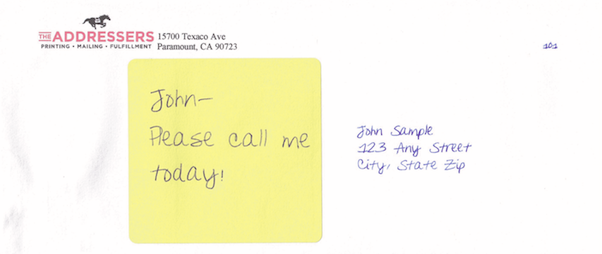 THE ADDRESSERS
PRINTING • MAILING • FULFILLMENT
15700 Texaco Ave
Paramount, CA 90723
101
John—
Please call me
today!
John Sample
123 Any Street
City, State Zip